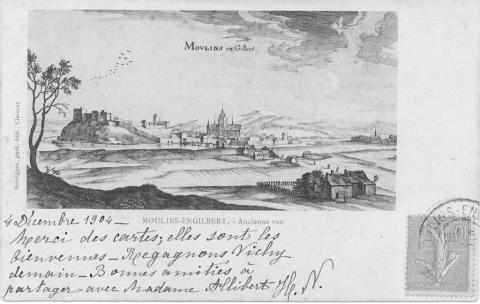 MOVLINS en Gilbert
MOULINS-ENGILBERT. - Ancienne vue
4 Décembre 1904 -
Merci des cartes; elles sont les
bienvenues - Regagnons Vichy
demain - Bonnes amitiés à
partager avec Madame Allibert H. N.
10